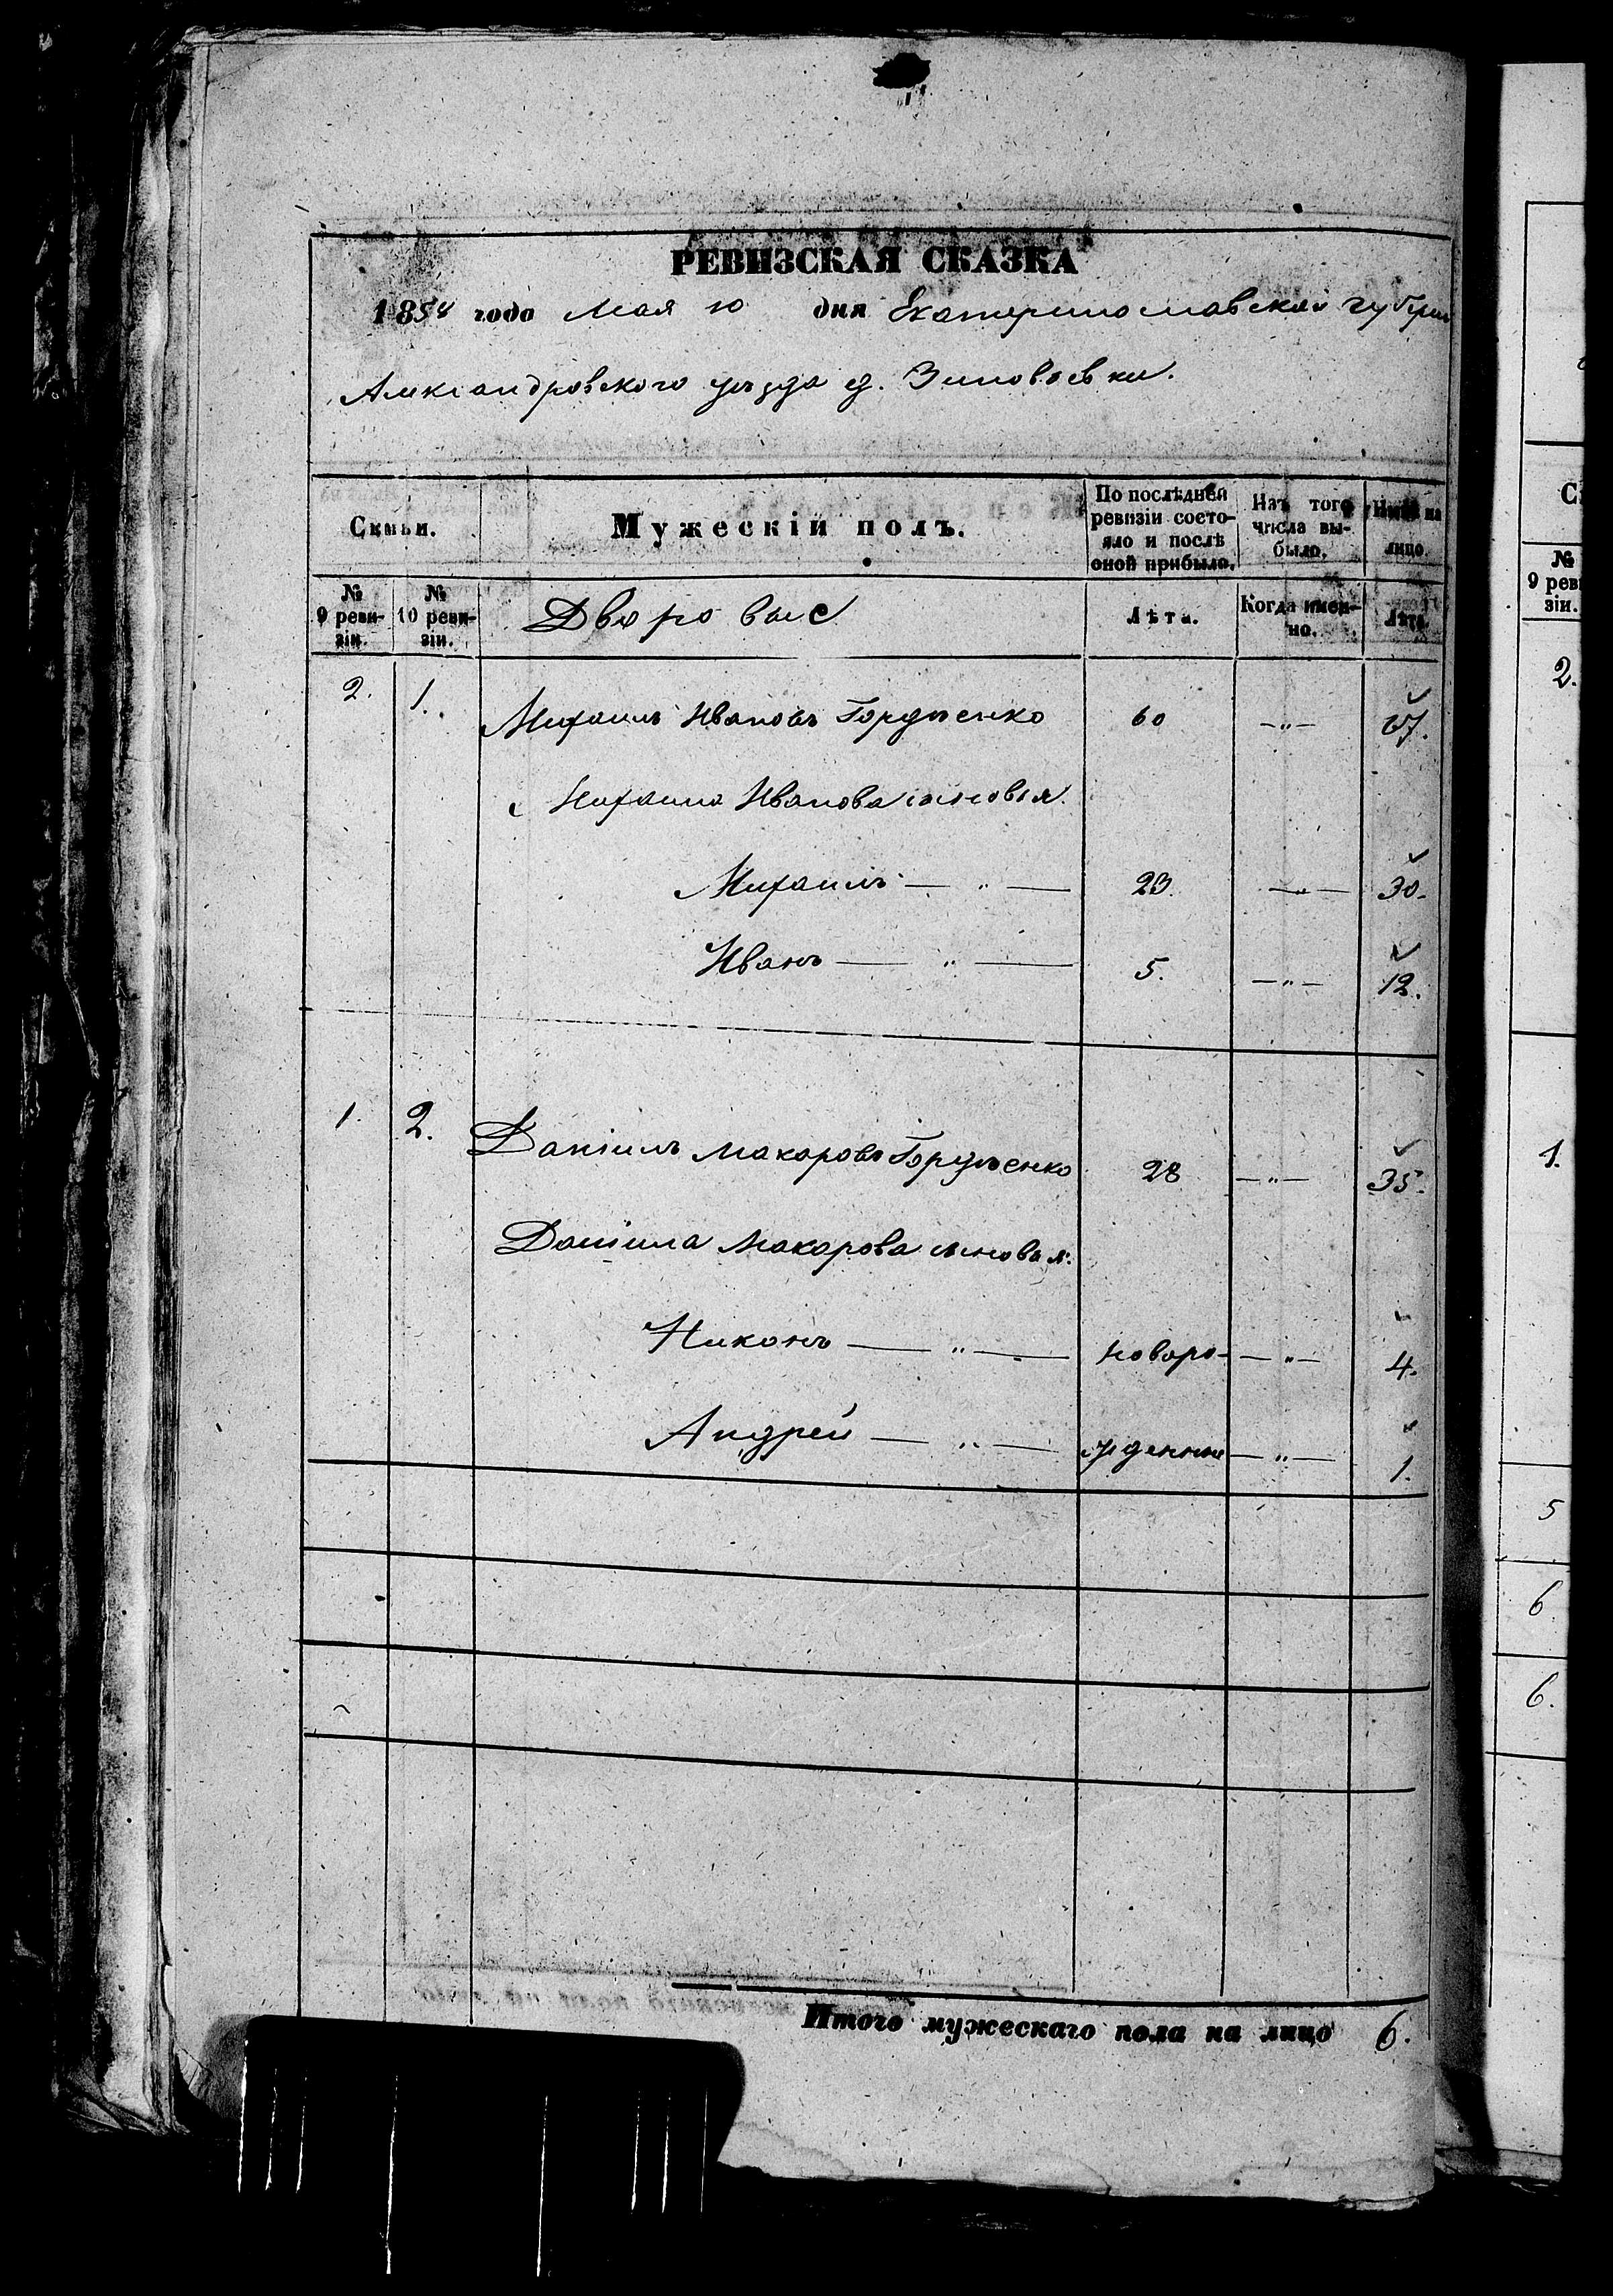 РЕВИЗСКАЯ СКАЗКА
1858 года Мая 10 дня Екатеринославской губерн
Александровского уѣзда д. Зиновьевки.
Семьи.
Мужескій полъ.
По послѣдней ревизіи состо-
яло и послѣ
оной прибыло.
Изъ того
числа вы-
было.
Нынѣ на
лицо.
№
9 реви-
зіи.
№
10 реви-
зіи.
Дворовые
Лѣта.
Когда имен-
но.
Лѣта.
2. 1. Михаилъ Ивановъ Гордѣенко 60 —"— 67.
Михаила Иванова сыновья.
Михаилъ — " — 23. —"— 30.
Иванъ — " — 5. —"— 12.
1. 2. Даніилъ Макаровъ Гордѣенко 28 —"— 35.
Даніила Макарова сыновья:
Никонъ — " — новоро- —"— 4.
Андрей — " — жденные —"— 1.
Итого мужескаго пола на лицо 6.
С
№
9 реви
зіи.
2.
1.
5
6
6.